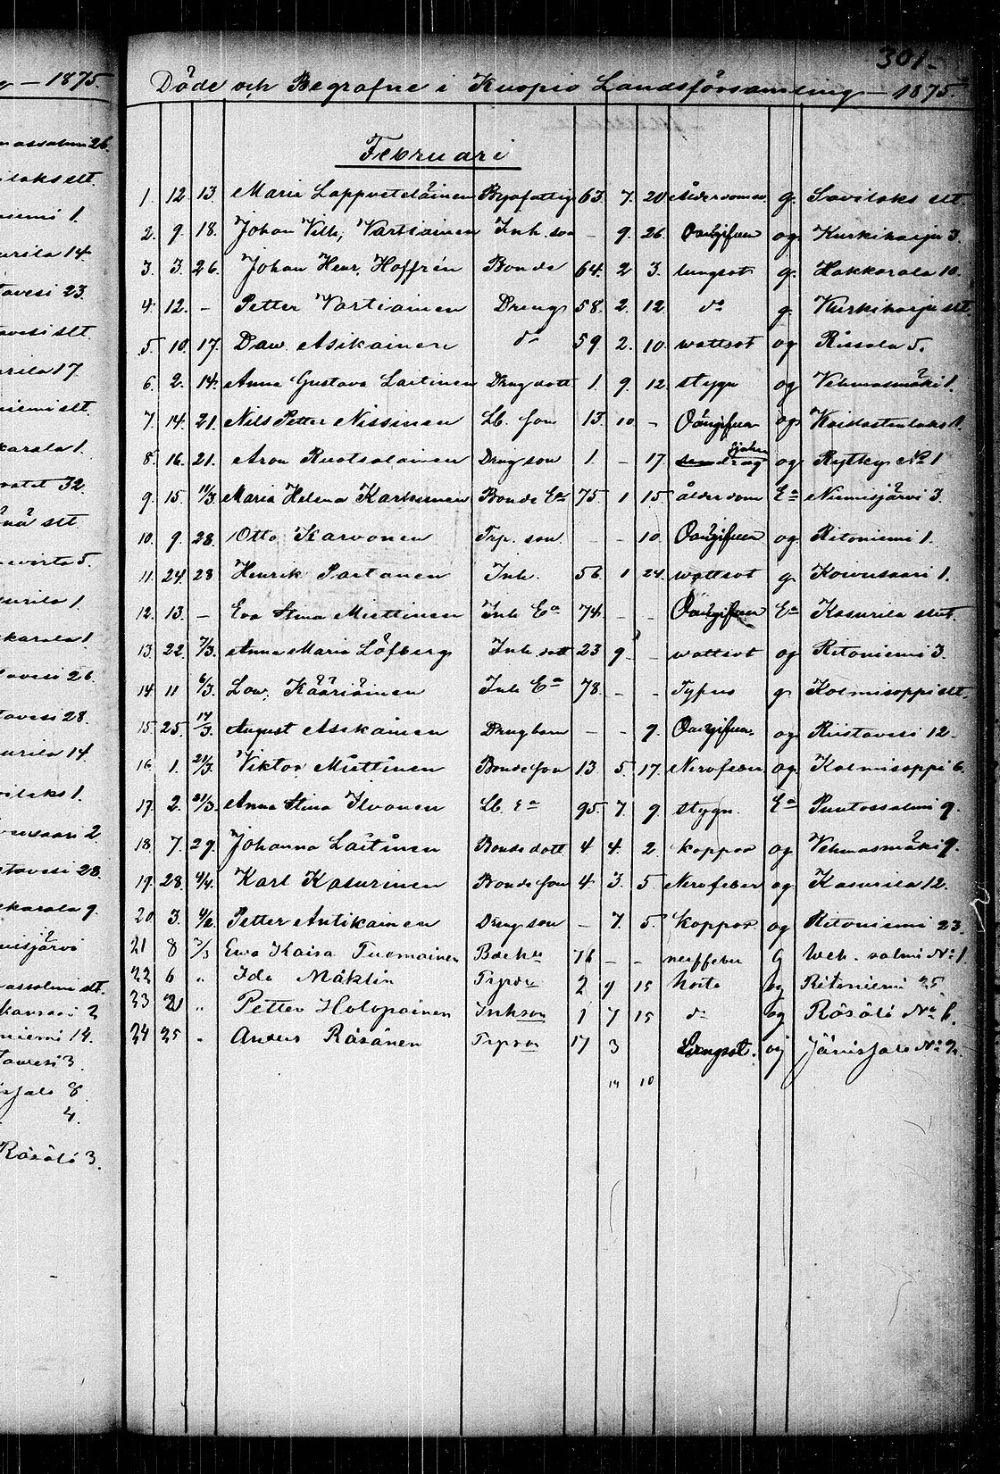 — 1875.
massalmi 26.
ilaks slt.
niemi 1.
urila 14.
tavesi 23.
tavesi slt.
urila 17
niemi slt.
karala 1.
vatet 32.
slt
5.
surila 1.
karala 1.
tavesi 26.
tavesi 28.
surila 14.
vilaks 1.
vensaari 2
stavesi 28.
skarala 9.
nisjärvi
assalmi slt.
kansari 2
niemi 14.
Tavesi 3.
sjals 8.
4.
Räsälä 3.
301.
Döde och Begrafne i Kuopio Landsförsamling — 1875.
Februari
1. 12. 13. Maria Lappveteläinen Byafattig 63. 7. 20 ålderdomen g. Savilaks slt
2. 9. 18. Johan Vilh. Vartiainen Inh. son - 9. 26. Oangifven og Kurkiharju 3.
3. 3. 26. Johan Henr. Hoffrén Bonde 64. 2 3. lungsot g. Hakkarala 10.
4. 12. - Petter Vartiainen Dreng 58. 2. 12 do g. Kurkiharju slt.
5. 10. 17. Dav. Asikainen do 59 2. 10. wattsot og Rissala 5.
6. 2. 14. Anna Gustava Laitinen Dreng dott 1. 9. 12. stygn og Vehmasmäki 1.
7. 14. 21. Nils Petter Nissinen Lb. son 13. 10 - Oangifven og Kaislastenlaks 1.
8. 16. 21. Aron Ruotsalainen Dreng son 1. - 17 drag og Rytky No 1
9. 15 11/3 Maria Helena Karhunen Bonde Ea 75 1 15. ålderdom Ea Niemisjärvi 3.
10. 9. 28. Otto Karvonen Trp. son. - - 10. Oangifven og Ritoniemi 1.
11. 24 28 Henrik Partanen Inh. 56. 1 24. wattsot g. Koivusaari 1.
12. 13. - Eva Stina Miettinen Inh Ea 74. - - Oangifven Ea Kasurila slt.
13. 22. 7/3. Anna Maria Löfberg Inh. dott 23 9. - wattsot og Ritoniemi 3.
14 11 6/3. Lov. Kääriäinen Inh Ea 78. - - Tyfus g. Kolmisoppi slt.
15. 25. 14/3. August Asikainen Dreng barn - - 9. Oangifven og Riistavesi 12.
16. 1. 21/3. Viktor Miettinen Bonde son 13 5. 17. Nervfeber og Kolmisoppi 6.
17. 2. 21/3. Anna Stina Ilvonen Lb. Ea 95. 7. 9 stygn. Ea Puutossalmi 9.
18. 7. 29. Johanna Laitinen Bonde dott 4 4. 2. koppor og Vehmasmäki 9.
19. 28. 4/4. Karl Kasurinen Bonde son 4 3. 5 Nervfeber og Kasurila 12.
20 3. 4/2. Petter Antikainen Dreng son - 7. 5. koppor og Ritoniemi 23.
21 8 Eva Kaisa Tuomainen 76 - - g Weh. salmi No 1
22 6 " Ida Mäklin 2 9 15 hosta og Ritoniemi 25.
23 20 " Petter Holopainen Inhson 1 7 15 do og Räsälä No 6.
24 25 " Anders Räsänen Trpson 17 3 Lungsot. og Jänissalo No 2.
14 10